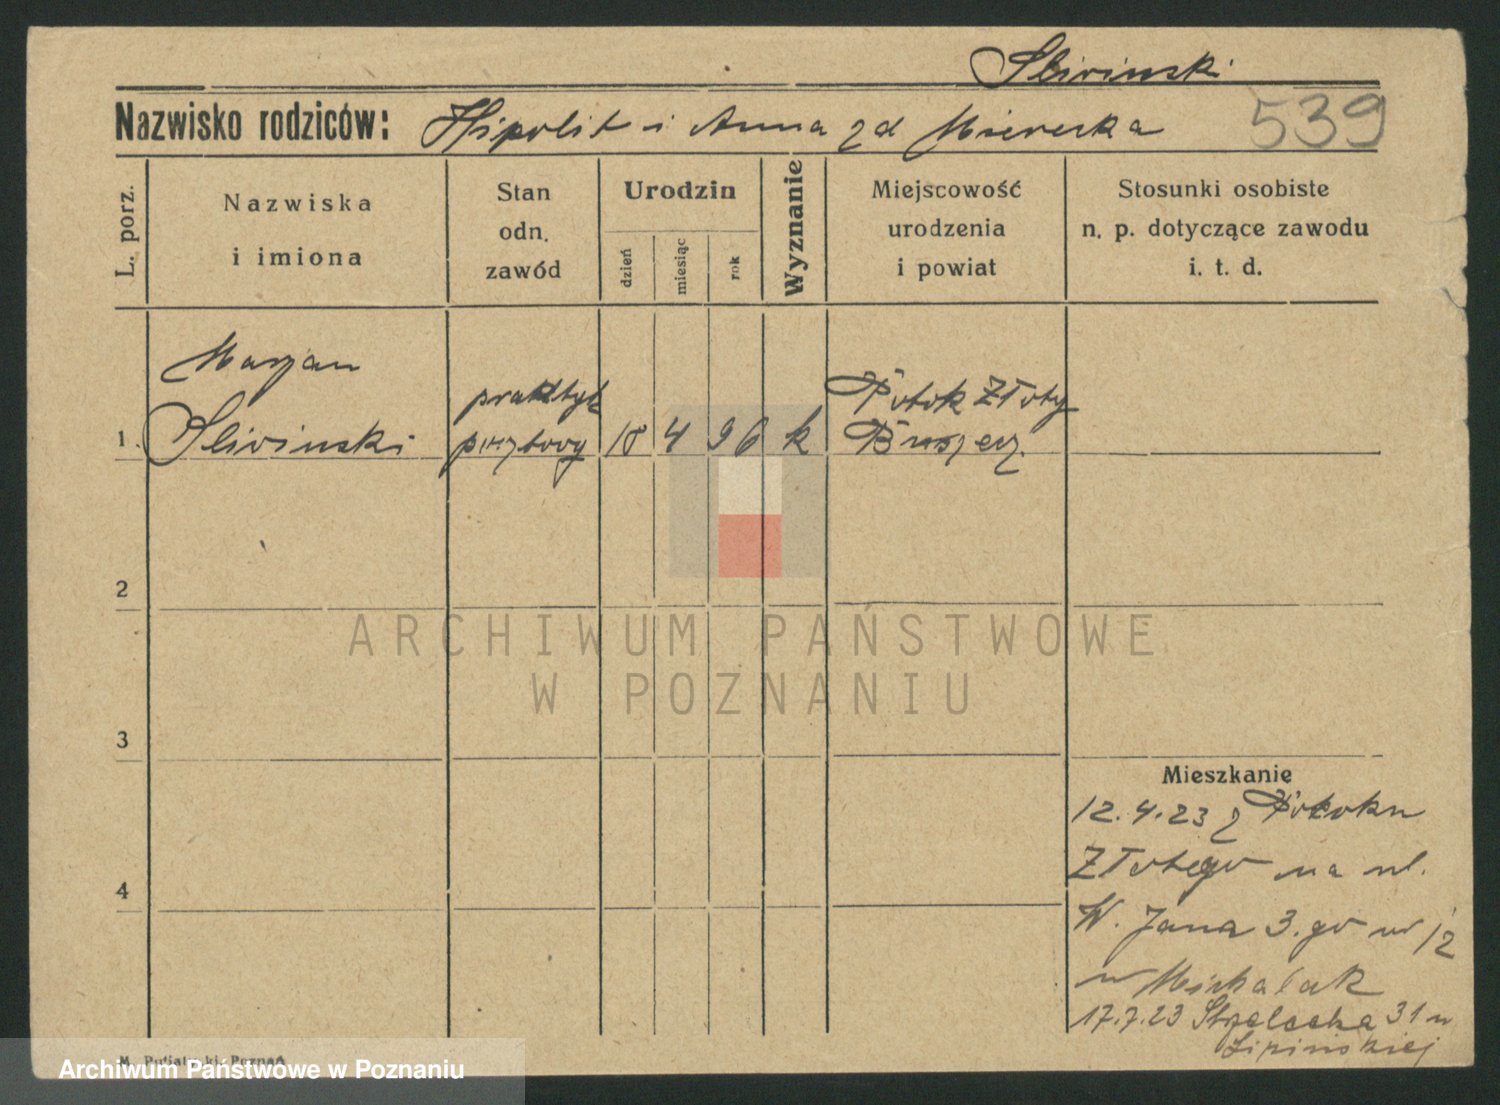 Sliwinski
Nazwisko rodziców: Hipolit i Anna zd 539
L. porz.
Nazwiska
i imiona
Stan
odn.
zawód
Urodzin
dzień
miesiąc
rok
Wyznanie
Miejscowość
urodzenia
i powiat
Stosunki osobiste
n. p. dotyczące zawodu
i. t. d.
Marjan
1. Sliwinski
praktyk
pocztowy
18 4 96 k
Potok Złoty
2
ARCHIWUM PAŃSTWOWE
W POZNANIU
3
4
Mieszkanie
12.4.23 z Potoku
Złotego na ul.
W. Jana 3.go nr 12
u Michalak
17.7.23 Strzelecka 31 u
Lipińskiej
Archiwum Państwowe w Poznaniu